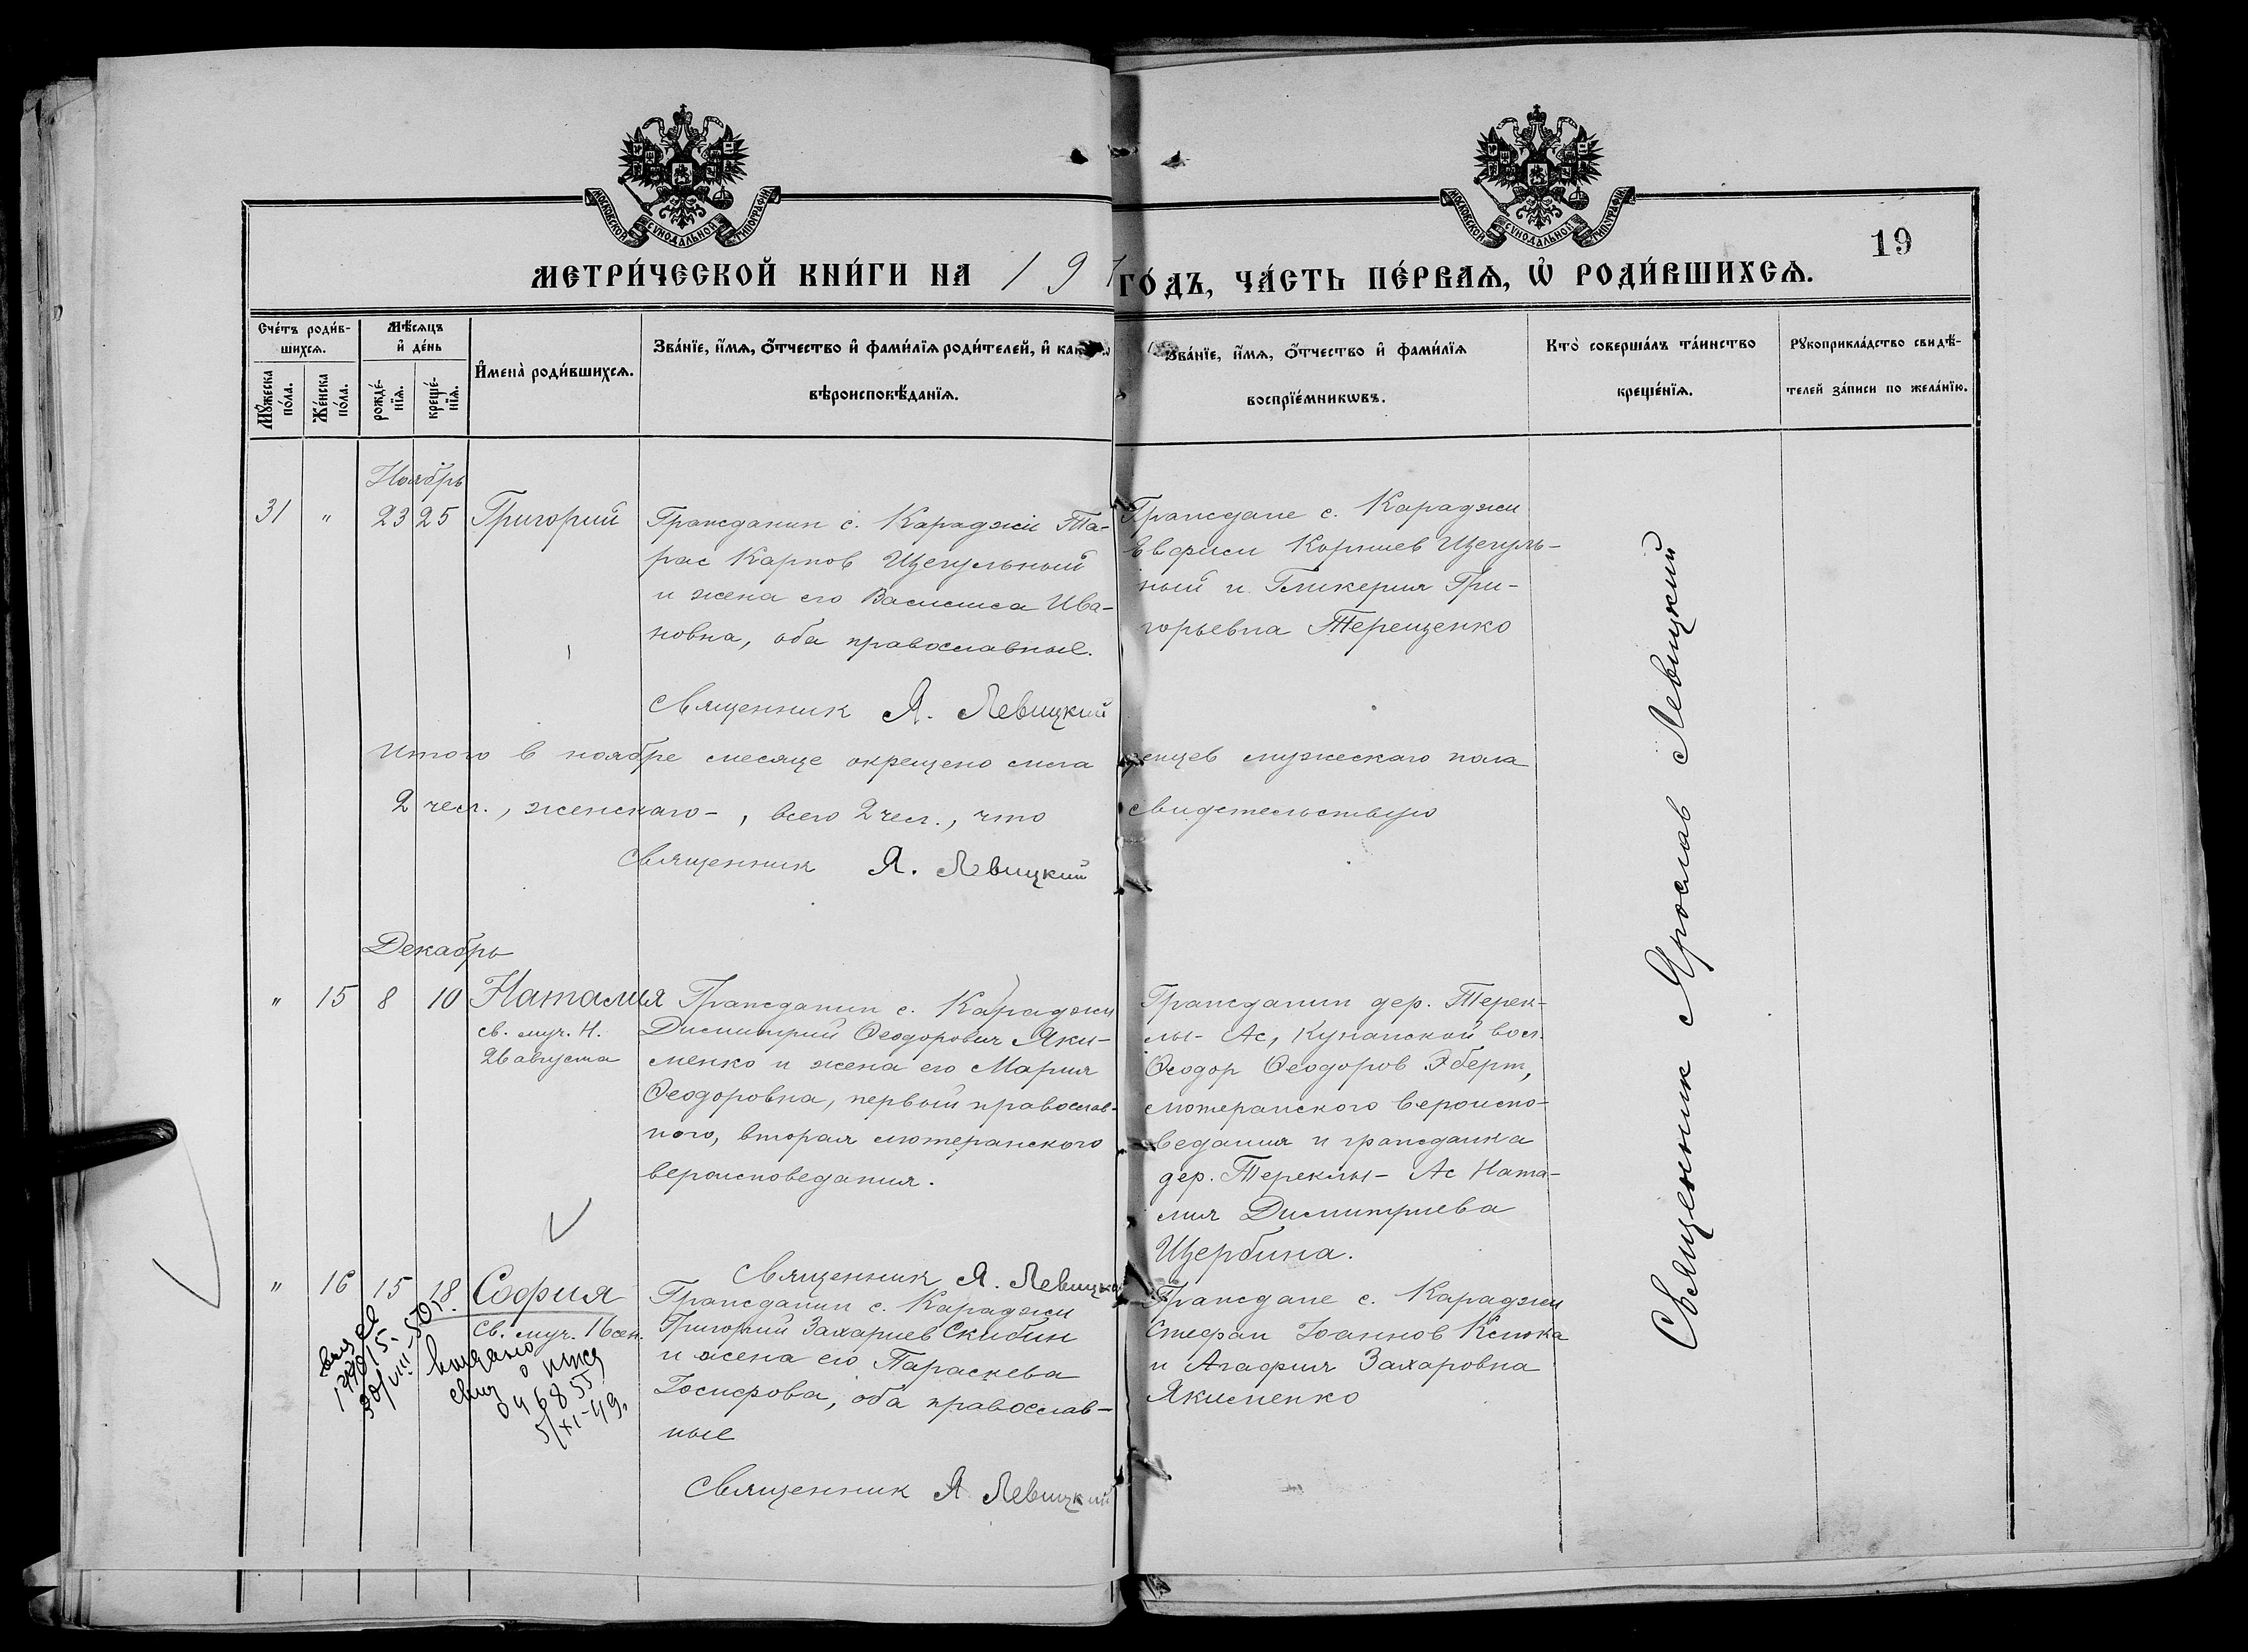 МОСКОВСКОЙ СѴНОДАЛЬНОЙ ТИПОГРАФІИ
МОСКОВСКОЙ СѴНОДАЛЬНОЙ ТИПОГРАФІИ
19
МЕТРИ́ЧЕСКОЙ КНИ́ГИ НА 191
ГО́ДЪ, ЧА́СТЬ ПЕ́РВАѦ, Ѡ҆ РОДИ́ВШИХСѦ.
Сче́тъ роди́в-
шихсѧ.
Мѣ́сѧцъ
и҆ де́нь
Мꙋ́жеска по́ла.
Же́нска по́ла.
рожде́-
нїѧ.
креще́-
нїѧ.
И҆мена̀ роди́вшихсѧ.
Зва́нїе, и҆́мѧ, ѻ҆́тчество и҆ фами́лїѧ роди́телей, и҆ как
вѣроисповѣ́данїѧ.
Зва́нїе, и҆́мѧ, ѻ҆́тчество и҆ фами́лїѧ
воспрїе́мникѡвъ.
Кто̀ соверша́лъ та́инство
креще́нїѧ.
Рꙋкоприкла́дство свидѣ́-
телей за́писи по жела́нїю.
Ноябрь
31 " 23 25 Григорий
Гражданин с. Караджи Та-
рас Карпов Щегульный
и жена его Васисиса Ива-
новна, оба православные.
Священник Я. Левицкий
Граждане с. Караджи
Щегуль-
ный и Гликерия Гри-
горьевна Терещенко
Итого в ноябре месяце окрещено мла денцев мужескаго пола
2 чел., женскаго -, всего 2 чел., что свидетельствую
Священник Я. Левицкий
Декабрь
" 15 8 10 Наталия
св. муч. Н.
26 августа
Гражданин с. Караджи
Димитрий Феодорович Яки-
менко и жена его Мария
Феодоровна, первый православ-
ного, вторая лютеранского
вероисповедания.
Священник Я. Левицкий
Гражданин дер. Терек-
лы- Ас, Кунанской вол.
Феодор Феодоров Эберт,
лютеранского вероиспо-
ведания и гражданка
дер. Тереклы- Ас Ната-
лия Димитриева
Щербина.
" 16 15 18 София
св. муч. 16 сен.
Гражданин с. Караджи
Григорий Захариев Скибин
и жена его Параскева
Иосифова, оба православ-
ные
Священник Я Левицкий
Граждане с. Караджи
Стефан Иоаннов Клюка
и Агафия Захаровна
Якименко
30/VIII-50г.
выдано
свид о
046855
5/XI-49г
Священник Ярослав Левицкий